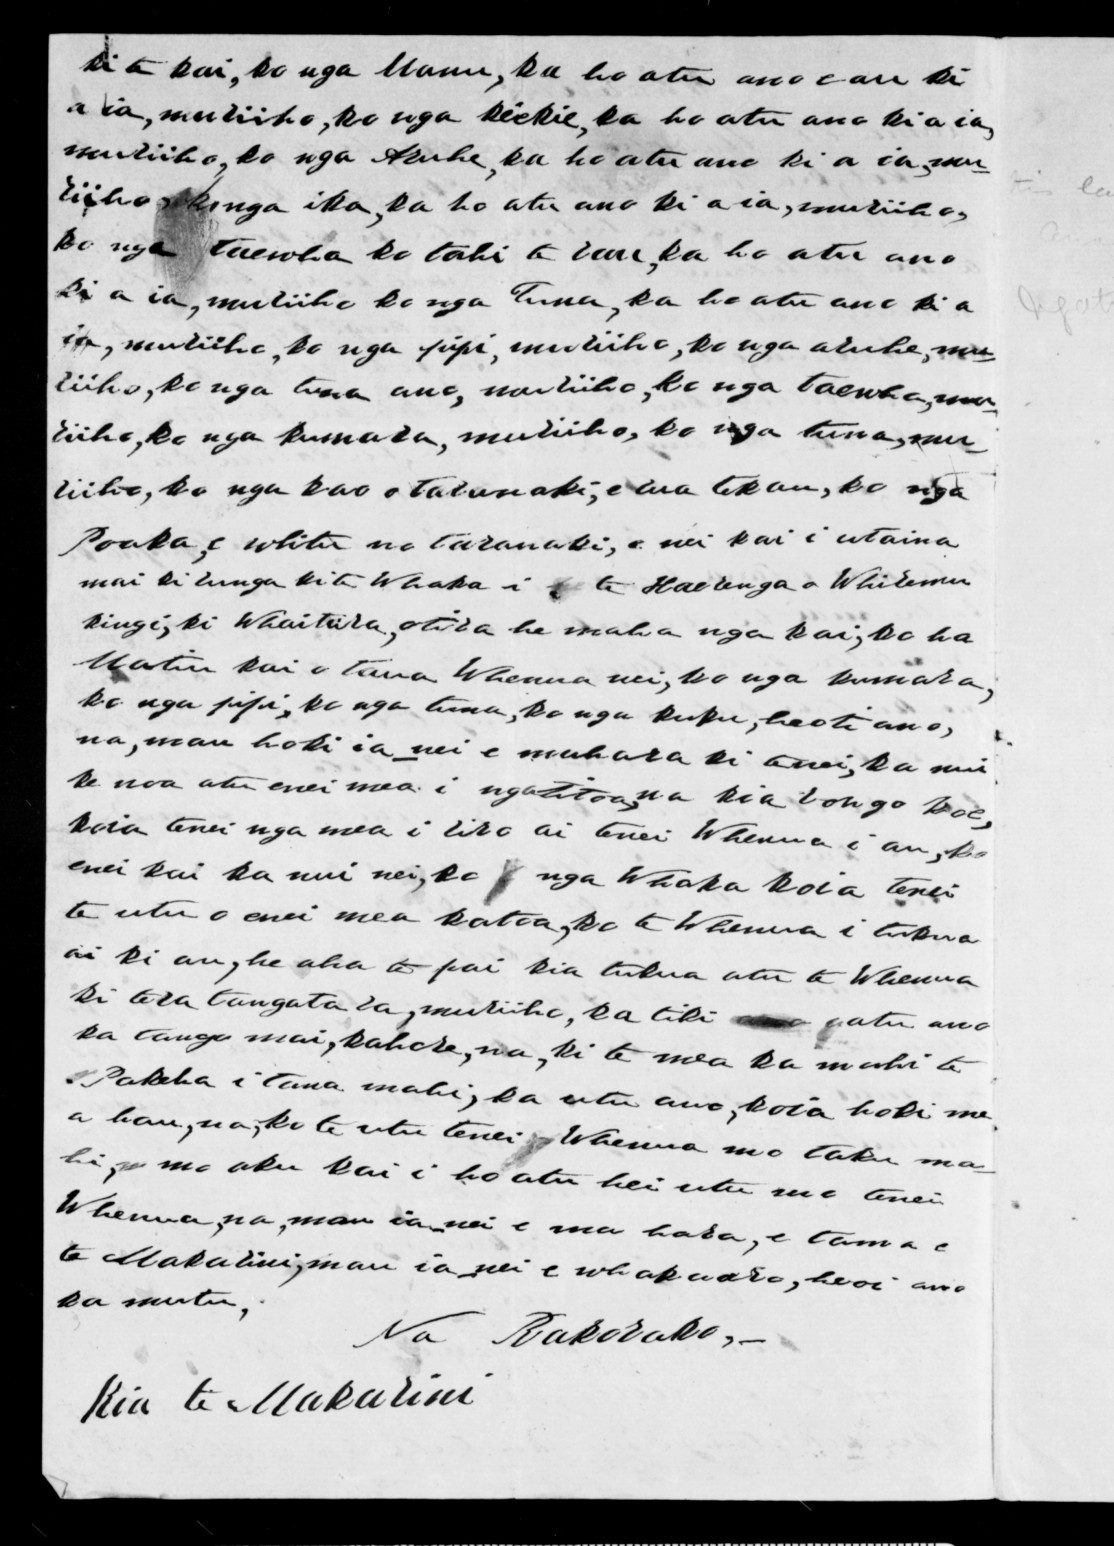 ki te kai, ko nga Manu, ka ho atu ano e au ki
a ia, muriiho, ko nga kiekie, ka ho atu ano ki a ia,
muriiho, ko nga Aruhe, ka ho atu ano ki a ia, mu-
riiho, ko nga ika, ka ho atu ano ki a ia, muriiho,
ko nga taewha ko tahi te rau, ka ho atu ano
ki a ia, muriiho ko nga Tuna, ka ho atu ano ki a
ia, muriiho, ko nga pipi, muriiho, ko nga aruhe, mu-
riiho, ko nga tuna ano, muriiho, ko nga taewha, mu-
riiho, ko nga kumara, muriiho, ko nga tuna, mu-
riiho, ko nga kao o taranaki, e rua tekau, ko nga
Poaka, e whitu no taranaki, e nei kai i utaina
mai ki runga ki te Whaka i te Haerenga o Whiremu
kingi, ki Whaitira, otira he maha nga kai, ko ha
Matiu kai o taua Whenua nei, ko nga kumara,
ko nga pipi, ko nga tuna, ko nga kuku, heoti ano,
na, mau hoki ia nei e mahara ki tenei, ka nui
ke noa atu enei mea i ngatitoa, na kia rongo koe,
koia tenei nga mea i riro ai tenei Whenua i au, ko
enei kai ka nui nei, ko nga Whaka koia tenei
te utu o enei mea katoa, ko te Whenua i tukua
ai ki au, he aha te pai kia tukua atu te Whenua
ki tera tangata ra, muriiho, ka tiki atu ano
ka tango mai, kahore, na, ki te mea ka mahi te
Pakeha i tana mahi, ka utu ano, koia hoki me
a hau, na, ko te utu tenei Whenua mo taku ma-
hi, mo aku kai i ho atu hei utu mo tenei
Whenua, na, mau ia nei e ma hara, e tama e
te Makarini, mau ia nei e whakaaro, heoi ano
ka mutu,
Na Rakorako,
Kia te Makarini